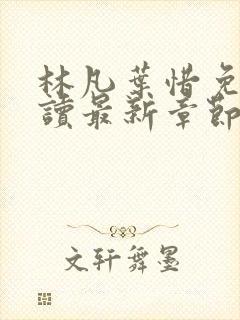 林凡葉惜免
讀最新章節
文轩舞墨